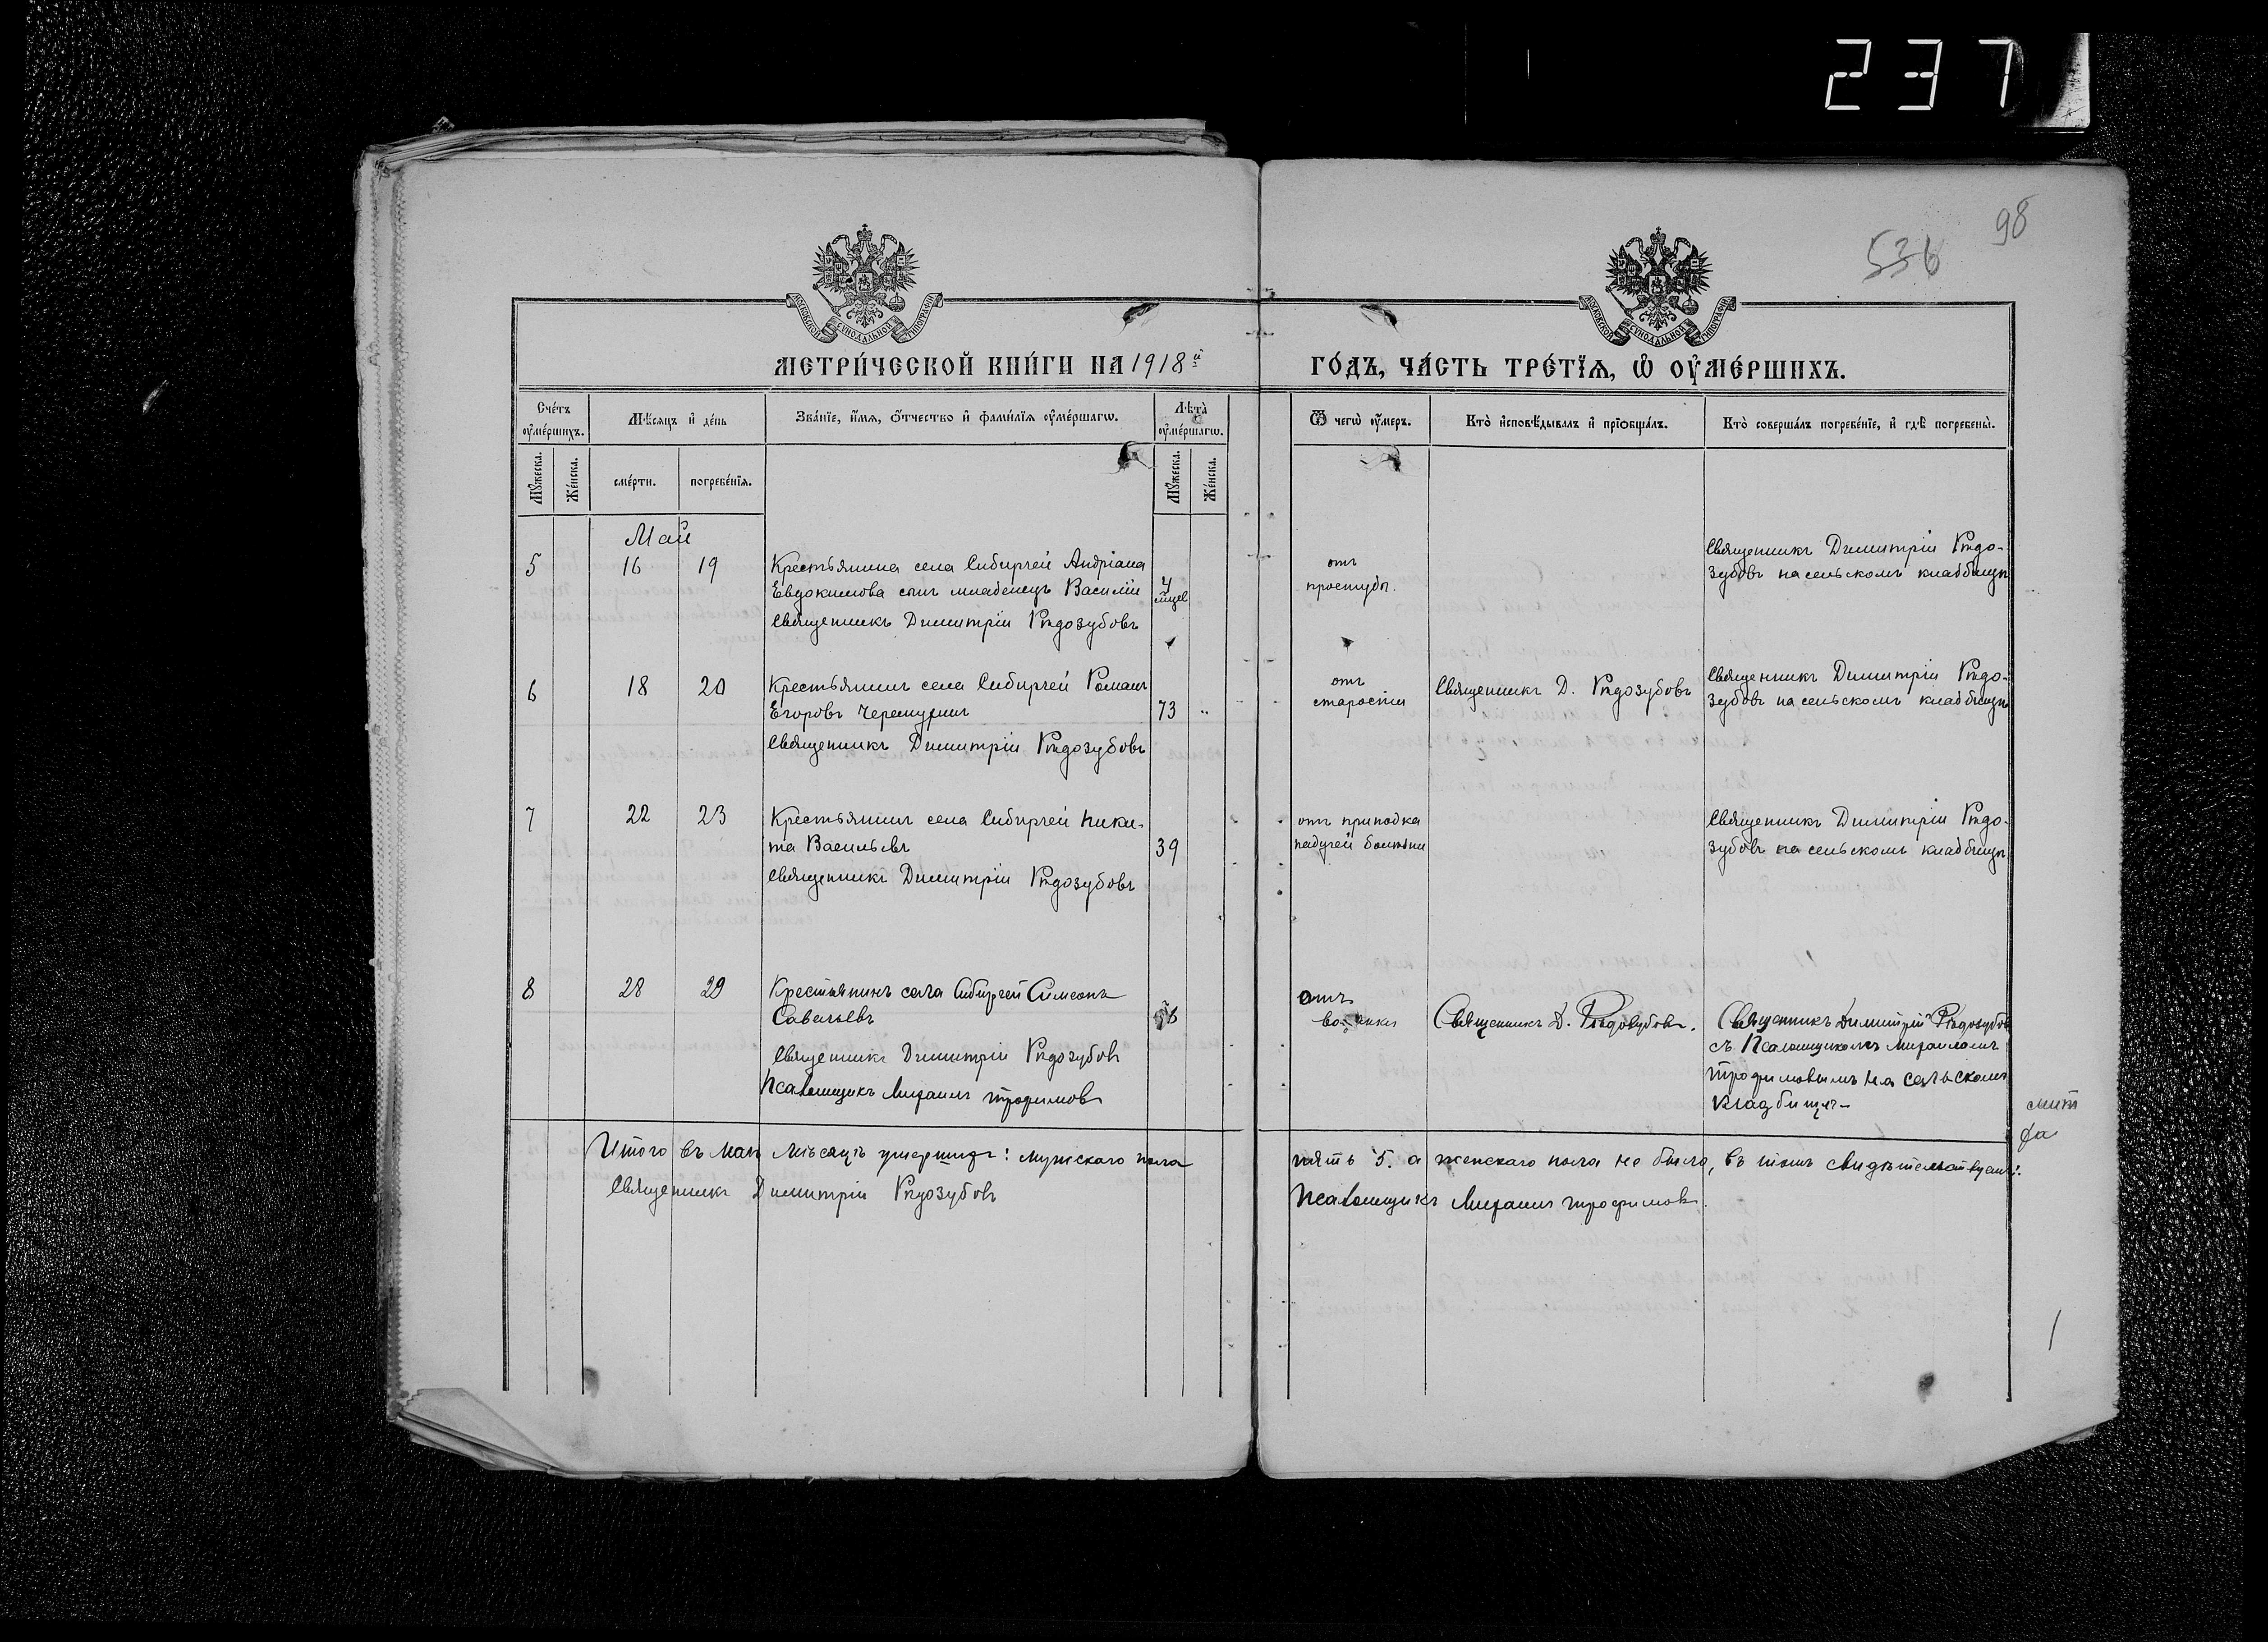 237
98
536
МОСКОВСКОЙ СѴНОДАЛЬНОЙ ТИПОГРАФІИ
МОСКОВСКОЙ СѴНОДАЛЬНОЙ ТИПОГРАФІИ
МЕТРИ́ЧЕСКОЙ КНИ́ГИ НА 1918й
ГО́ДЪ, ЧА́СТЬ ТРЕ́ТЇѦ, Ѡ҆ ОУ҆МЕ́РШИХЪ.
Сче́тъ оу҆ме́ршихъ.
Мѣ́сяцъ и҆ де́нь
Зва́нїе, и҆́мя, ѻ҆́тчество и҆ фами́лїя оу҆ме́ршагѡ.
Лѣта̀ оу҆ме́ршагѡ.
Ѿ чегѡ̀ оу҆́меръ.
Кто̀ и҆сповѣ́дывалъ и҆ прїобща́лъ.
Кто̀ соверша́лъ погребе́нїе, и҆ гдѣ̀ погребены̀.
Мꙋ́жеска.
Же́нска.
сме́рти.
погребе́нїя.
Мꙋ́жеска.
Же́нска.
Май
5
16
19
Крестьянина села Сибирчей Андріана
Евдокимова сынъ младенецъ Василій
Священникъ Димитрій Рѣдозубовъ
4
мцев
отъ
простуды.
Священникъ Димитрій Рѣдо-
зубовъ на сельскомъ кладбищѣ
6
18
20
Крестьянинъ села Сибирчей Романъ
Егоровъ
Священникъ Димитрій Рѣдозубовъ
73
"
отъ
старости
Священникъ Д. Рѣдозубовъ
Священникъ Димитрій Рѣдо-
зубовъ на сельскомъ кладбищѣ
7
22
23
Крестьянинъ села Сибирчей Ники-
та Васильевъ
Священникъ Димитрій Рѣдозубовъ
39
отъ припадка
падучей болѣзни
Священникъ Димитрій Рѣдо-
зубовъ на сельскомъ кладбищѣ
8
28
29
Крестьянинъ села Сибирчей Симеонъ
Савельевъ
Священникъ Димитрій Рѣдозубов
Псаломщикъ Михаилъ Трофимовъ
отъ
Священникъ Д. Рѣдозубовъ.
Священникъ Димитрій Рѣдозубов
съ Псаломщикомъ Михаиломъ
Трофимовымъ на сельскомъ
кладбищѣ
Итого въ маѣ мѣсяцѣ умершихъ: мужскаго пола
пять 5. а женскаго пола не было, въ томъ свидѣтельствуемъ:
Священникъ Димитрій Рѣдозубовъ
Псаломщикъ Михаилъ Трофимовъ.